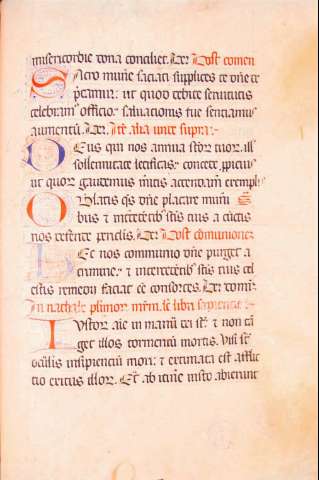 misericordie dona conciliet. Per. Post comen
Sacro mun̄e saciati supplices te dn̄e de
p̄camur: ut quod debite servitutis
celebram᷒ officio. salvationis tue senciamus
aumentū. Per. Itē alia unde supra.
Deus qui nos annua sc̄or tuor. ill
sollemnitate letificas: concede ppiciu᷒
ut quor gaudemus m̄itis accendam̄ exempl᷒
Oblatis qs dn̄e placare mun̄i
bus & intercedētib᷒ sc̄tis tuis a cūctis
nos defende periclis. Per: Post comunionē
Hec nos communio dn̄e purget a
crimine: & intercedētib᷒ sc̄tis tuis cel
estis remedii faciat eē consortes. Per dom̄.
In nathale plimor. mr̄m. lc̄ libri sapientie
Iustor aīe in manū dei st̄: & non tā
get illos tormentū mortis. Visi st̄
oculis insipientiū mori: & extimata est afflic
tio exitus illor. Et ab itin̄e iusto abierunt